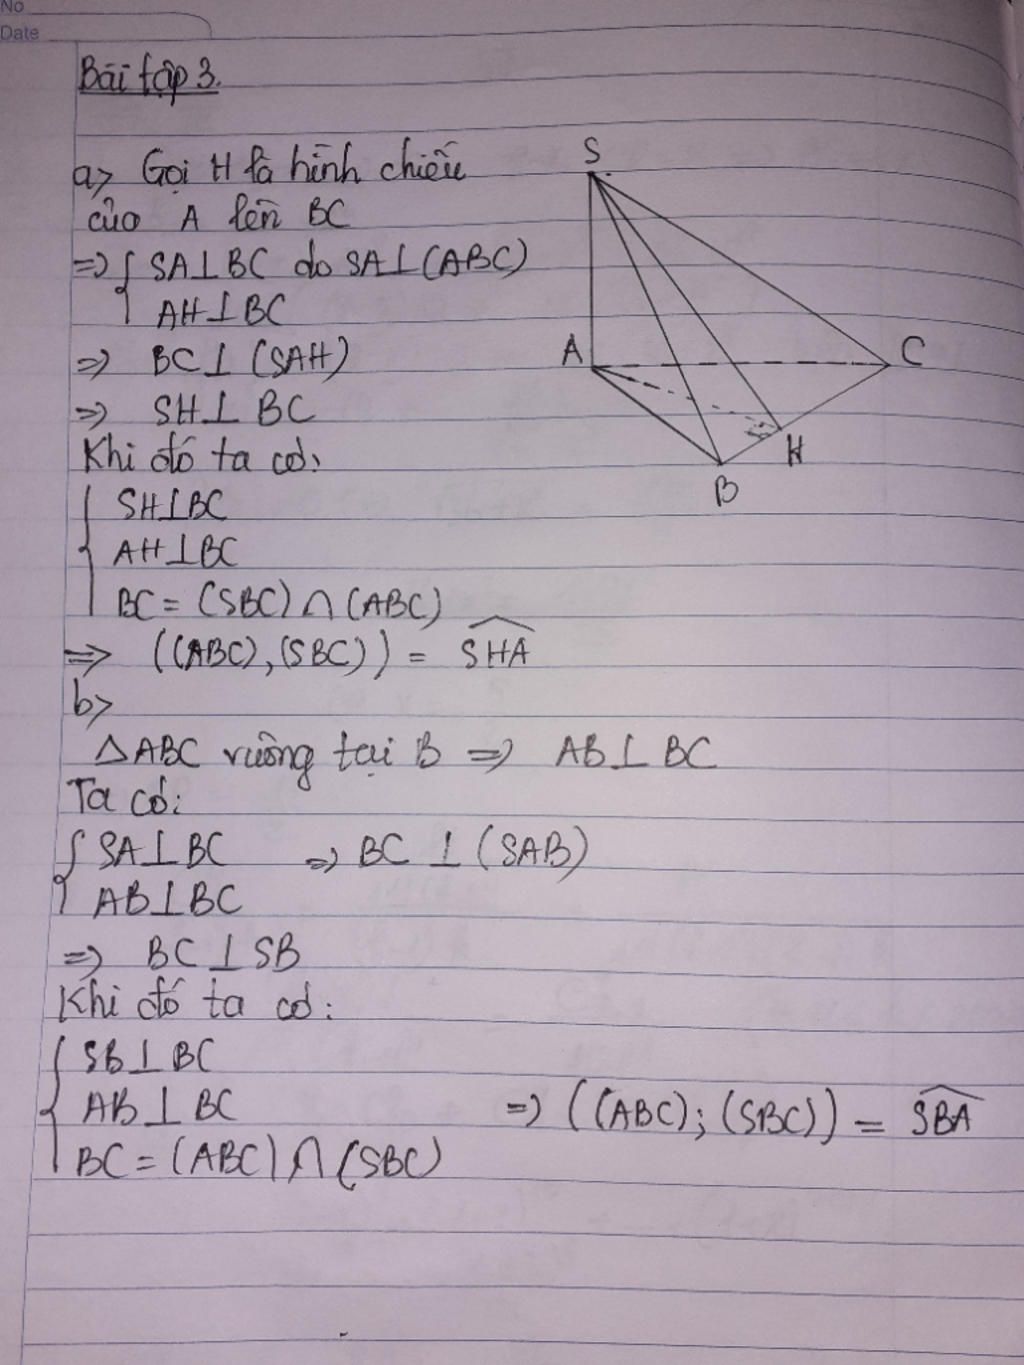 No
Date
Bài tập 3.
a> Gọi H là hình chiếu
của A lên BC
=> { SA⊥BC do SA⊥(ABC)
AH⊥BC
=> BC⊥(SAH)
=> SH⊥BC
Khi đó ta có:
{ SH⊥BC
AH⊥BC
BC = (SBC)∩(ABC)
=> ((ABC),(SBC)) = \widehat{SHA}
S
A
C
H
B
b>
△ABC vuông tại B => AB⊥BC
Ta có:
{ SA⊥BC => BC⊥(SAB)
AB⊥BC
=> BC⊥SB
Khi đó ta có:
{ SB⊥BC
AB⊥BC => ((ABC);(SBC)) = \widehat{SBA}
BC = (ABC)∩(SBC)